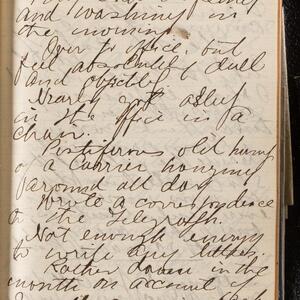 and washing in
the morning.
Over to office, but
feel absolutely dull
and
Nearly got asleep
in the office in a
chair.
Pestiferous old hump
of a carrier hanging
around all day
Wrote a correspondence
to the Telegraph.
Not enough energy
to write any
Rather down in the
month on account of